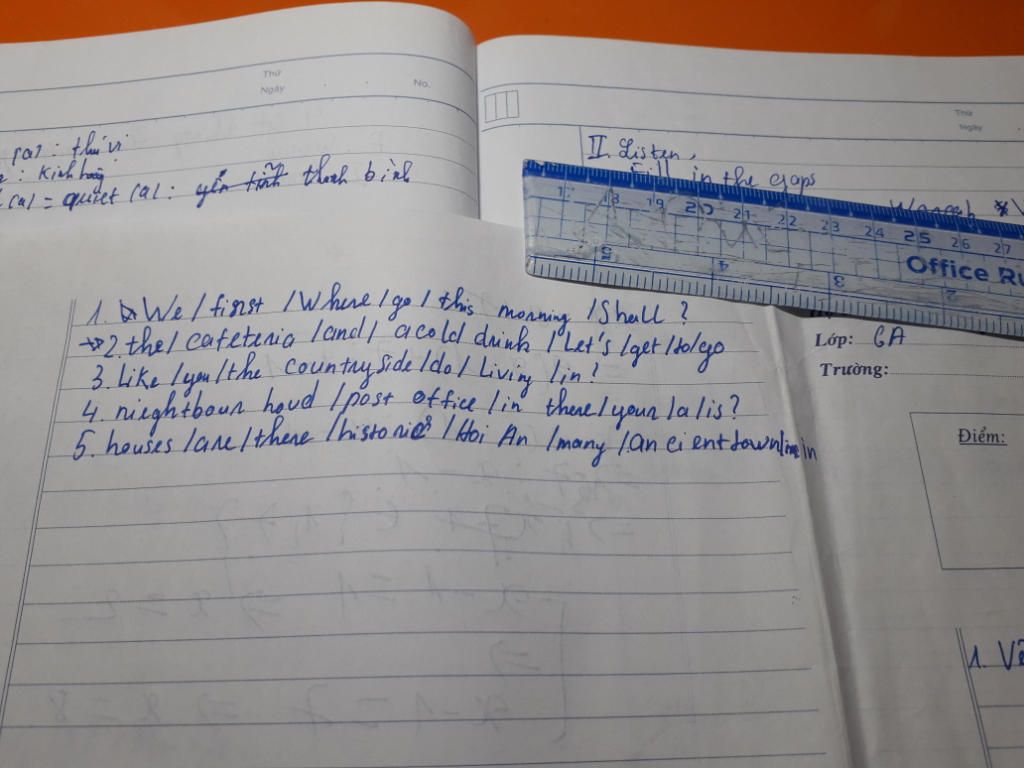 Thứ
Ngày
No.
(a): thú vị
: kinh hoàng
(a) = quiet (a): yên tĩnh thanh bình
Thứ
Ngày
II. Listen,
Fill in the gaps
18 19 20 21 22 23 24 25 26 27
5 4 3 2
Office Ru
1. We / first / Where / go / this morning / Shall ?
2. the / cafeteria / and / a cold drink / Let's / get / to / go
3. Like / you / the countryside / do / Living / in ?
4. nieghtbour houd / post office / in there / your / a / is ?
5. houses / are / there / historic / Hoi An / many / an cient town / in
Lớp: 6A
Trường:
Điểm:
1. Vẽ